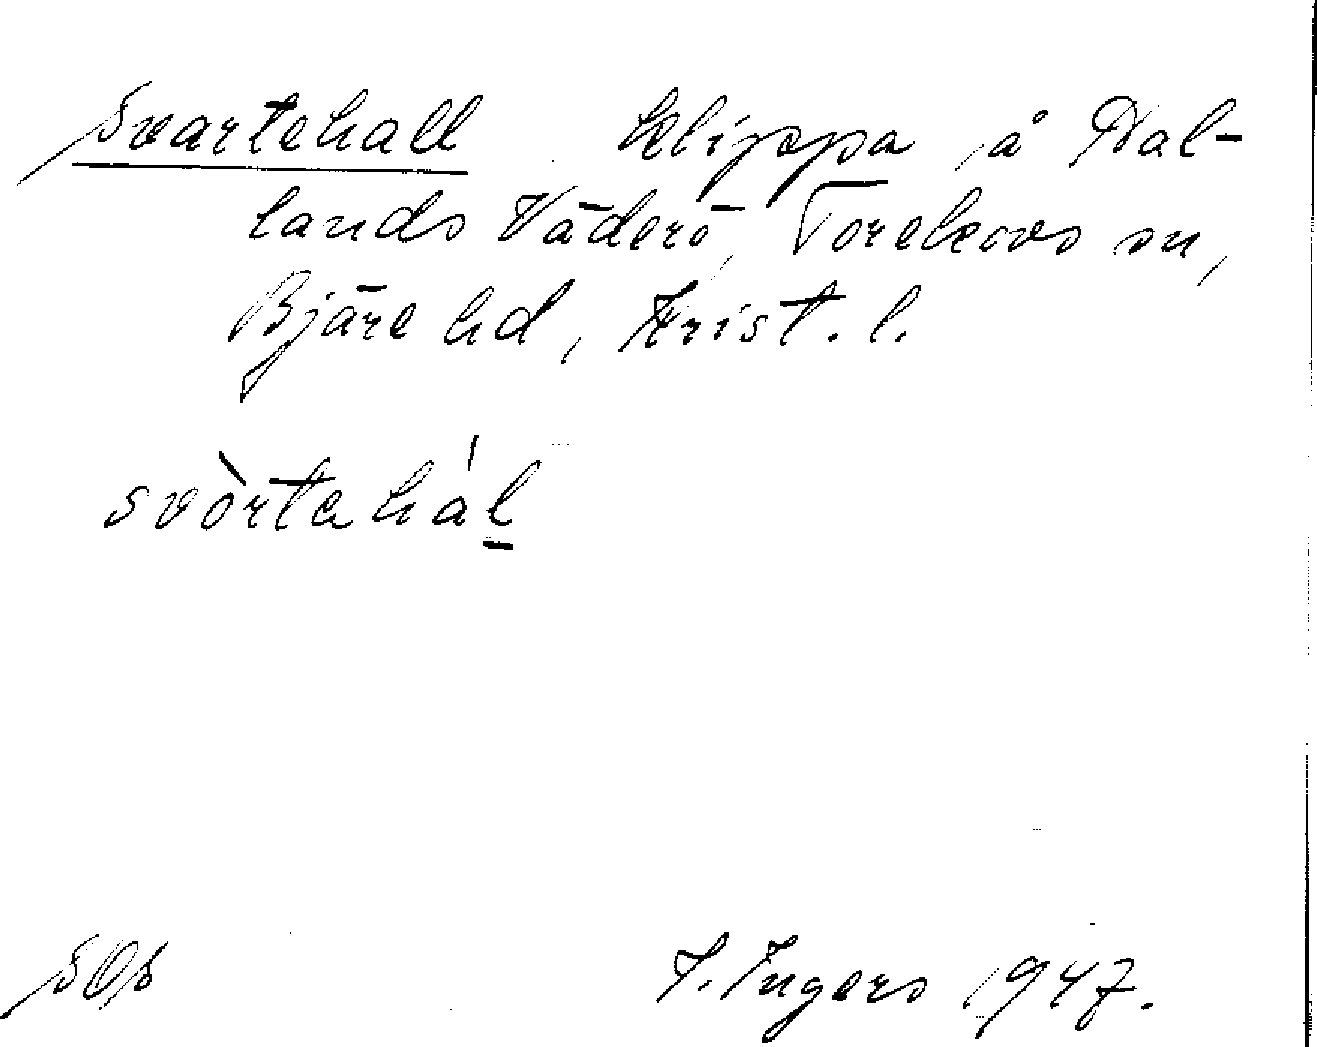 Svartehall klippa å Hal-
lands Väderö, Torekovs sn,
Bjäre hd, Krist. l.
svòrtahál
SOs
I. Ingers 1947.